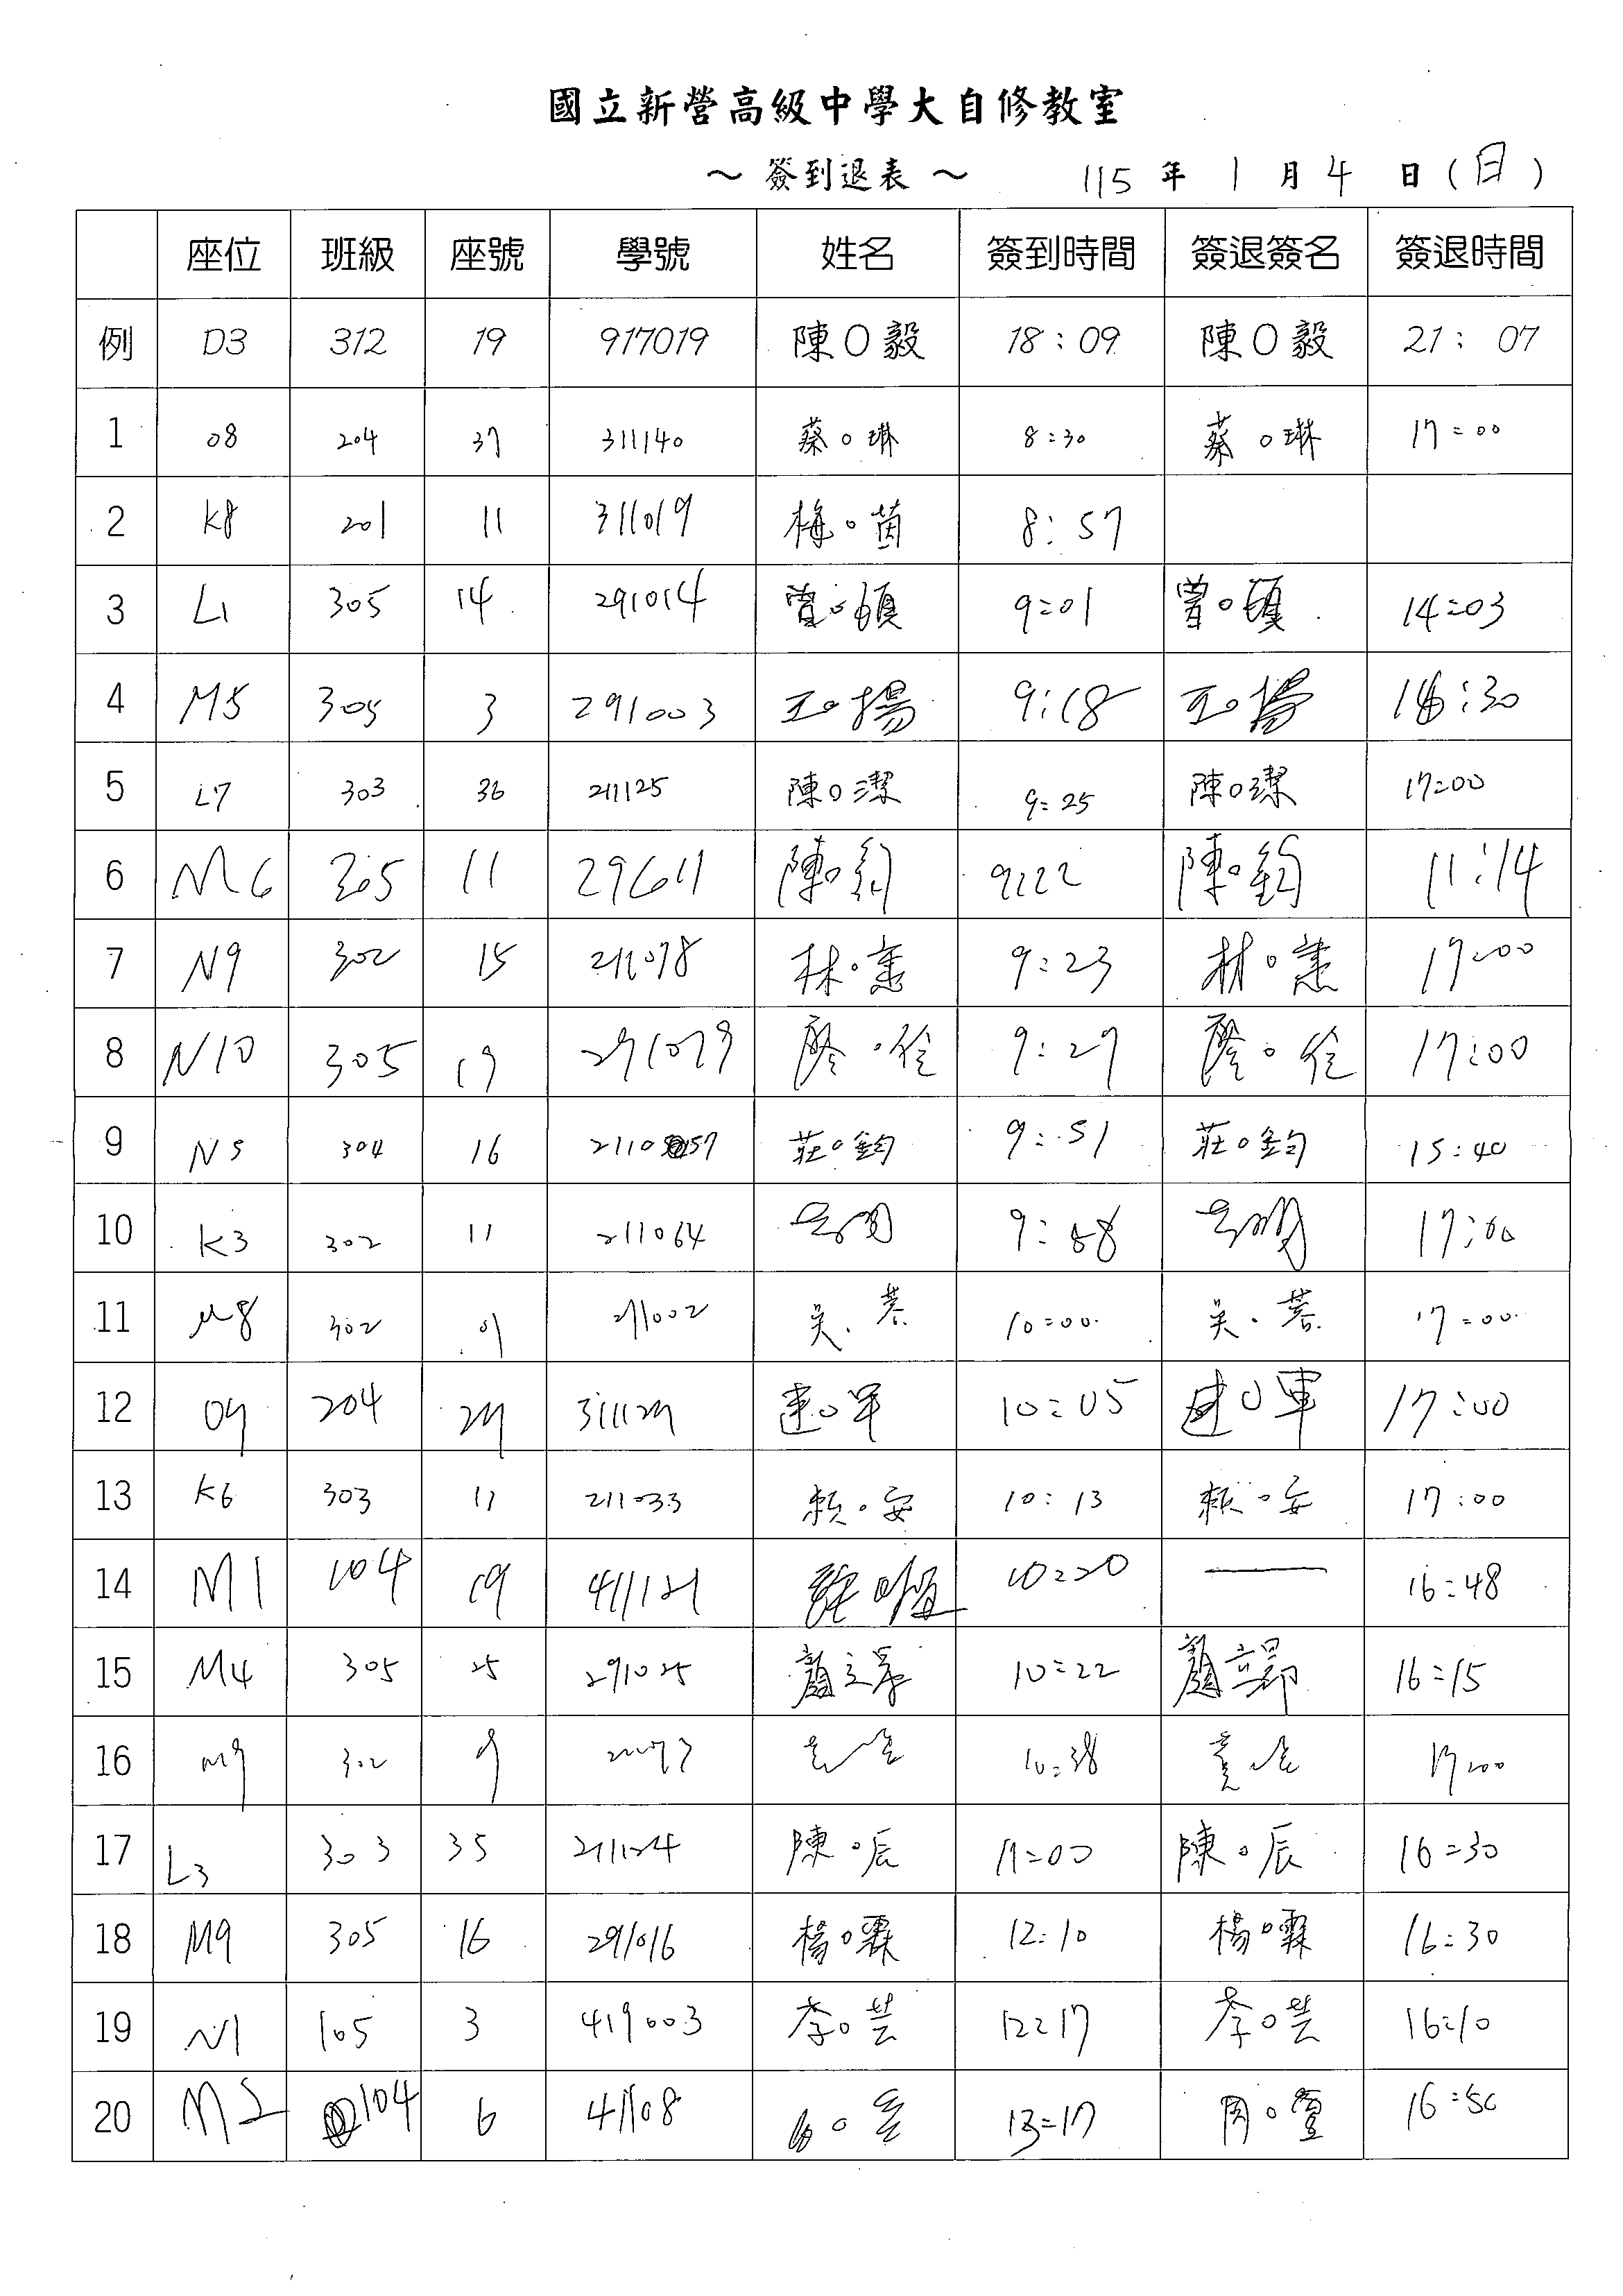 國立新營高級中學大自修教室
～ 簽到退表 ～ 115 年 1 月 4 日 (日)
座位 班級 座號 學號 姓名 簽到時間 簽退簽名 簽退時間
例 D3 312 19 917019 陳O毅 18:09 陳O毅 21:07
1 08 204 37 311140 蔡O琳 8:30 蔡O琳 17:00
2 K8 201 11 311019 梅O茵 8:57
3 L1 305 14 291014 曾O頤 9:01 曾O頤 14:03
4 M5 305 3 291003 王O揚 9:18 王O揚 :30
5 L7 303 36 211125 陳O潔 9:25 陳O潔 17:00
6 M6 305 11 陳O鈞 9:22 陳O鈞 11:14
7 N9 302 15 211078 林O蕙 9:23 林O蕙 17:00
8 N10 305 19 廖O佺 9:29 廖O佺 17:00
9 N5 304 16 莊O鈞 9:51 莊O鈞 15:40
10 K3 302 11 211064 9: 17:00
11 M8 302 01 211002 吳O 10:00 吳O 17:00
12 09 204 29 311129 連O軍 10:05 連O軍 17:00
13 K6 303 11 211033 賴O安 10:13 賴O安 17:00
14 M1 104 19 411121 10:20 — 16:48
15 M4 305 25 291025 顏立 10:22 顏立 16:15
16 M9 302 9 10:38 17:00
17 L3 303 35 211124 陳O辰 11:00 陳O辰 16:30
18 M9 305 16 291016 楊O霖 12:10 楊O霖 16:30
19 N1 105 3 419003 李O芸 12:17 李O芸 16:10
20 M2 104 6 41108 13:17 周O萱 16:50